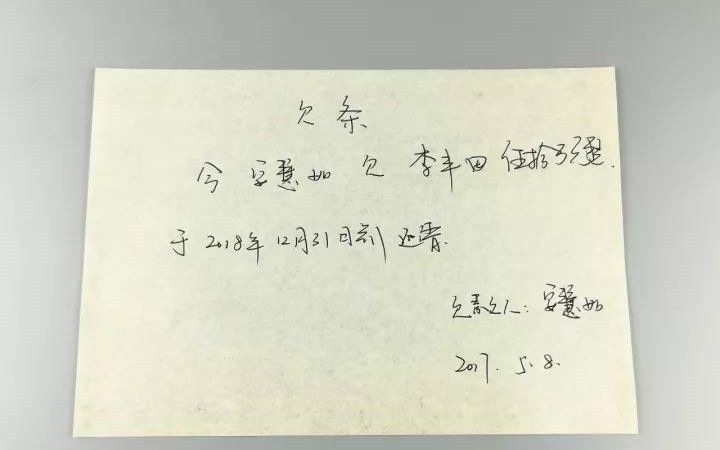 欠条
今 安慧如 欠 李丰田 伍拾张.
于 2018年 12月31日前 还清.
欠款人: 安慧如
2017. 5. 8.